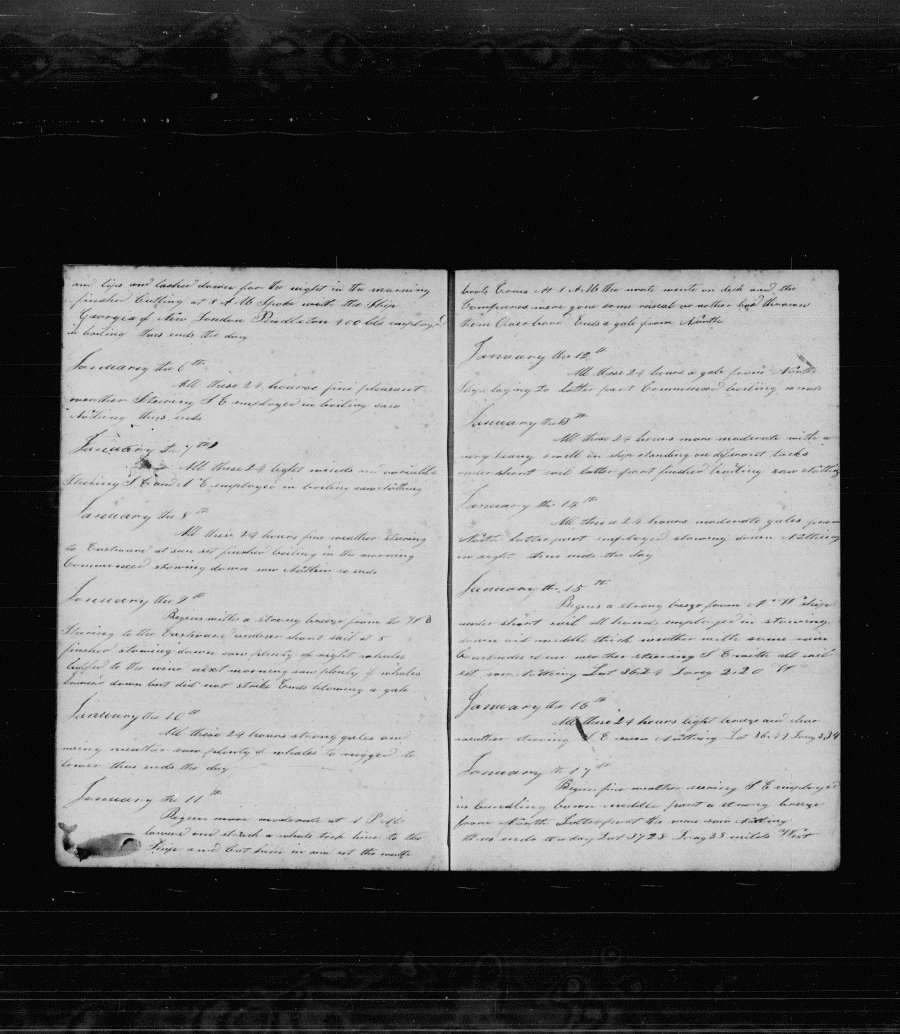 and lips and lashed down for the night in the morning
finished Cutting at 8 A.M Spoke with the Ship
Georgia of New London Pendleton 400 bbls employed
in boiling thus ends the day
January the 6th
All these 24 hours fine pleasant
weather Steering S E employed in boiling saw
Nothing thus ends
January the 7th
All these 24 light winds and variable
Steering S E and N E employed in boiling saw nothing
January the 8th
All these 24 hours fine weather steering
to Eastward at sun set finished boiling in the morning
Commenced stowing down saw Nothin so ends
January the 9th
Begins with a strong breeze from the
Stering to the Eastward under short sail at 8
finished stowing down saw plenty of right whales
luffed to the wind next morning saw plenty of whales
lowered down but did not strike Ends blowing a gale
January the 10th
All these 24 hours strong gales and
weather saw plenty of whales to rugged to
lower thus ends the day
January the 11th
Begins more moderate at 1 P M
lowered and struck a whale took him to the
Ship and cut him in and set the
boats Crews At 1 A M the mate went on deck and the
were gone some rascal or nother had thrown
them Overboard Ends a gale from North
January the 12th
All these 24 hours a gale from North
Ship laying to latter part Commenced boiling so ends
January the 13th
All these 24 hours more moderate with a
very heavy swell on ship standing on different tacks
under short sail latter part finished boiling saw Nothing
January the 14th
All these 24 hours moderate gales from
North latter part employed stowing down Nothing
in sight thus ends the day
January the 15th
Begins a strong breeze from N W Ship
under short sail All hands employed in stowing
down oil middle thick weather with some rain
Concludes clear weather steering S E with all sail
set saw nothing Lat 36.24 Long 2.20 W
January the 16th
All these 24 hours light breeze and clear
weather steering S E seen Nothing Lat 36 Long
January the 17th
Begins fine weather steering S E employed
in bundling bone middle part a strong breeze
from North Latter part the same saw nothing
thus ends the day Lat 37 28 Long 38 miles West